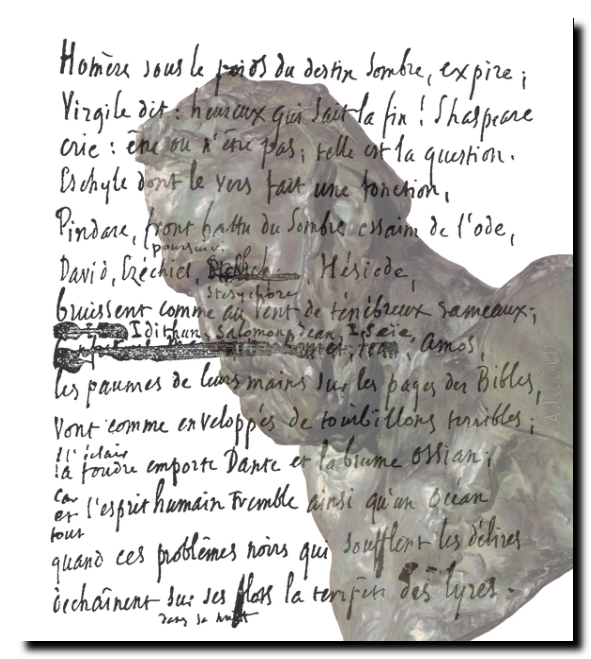 Homère sous le poids du destin sombre, expire ;
Virgile dit : heureux qui sait la fin ! Shaspeare
crie : être ou n'être pas ; telle est la question.
Eschyle dont le vers fait une fonction,
Pindare, front battu du sombre essaim de l'ode,
poursuivi
David, Ezéchiel, Hésiode,
Stésychore
bruissent comme au vent de ténébreux rameaux ;
Idithun, Salomon, Jean, Isaïe,
Amos,
les paumes de leurs mains sur les pages des Bibles,
vont comme enveloppés de tourbillons terribles ;
l'éclair
la foudre emporte Dante et la brume Ossian ;
car
et l'esprit humain tremble ainsi qu'un océan
tout
quand ces problèmes noirs qui soufflent les délires
déchaînent sur ses flots la tempête des lyres.
dans sa nuit